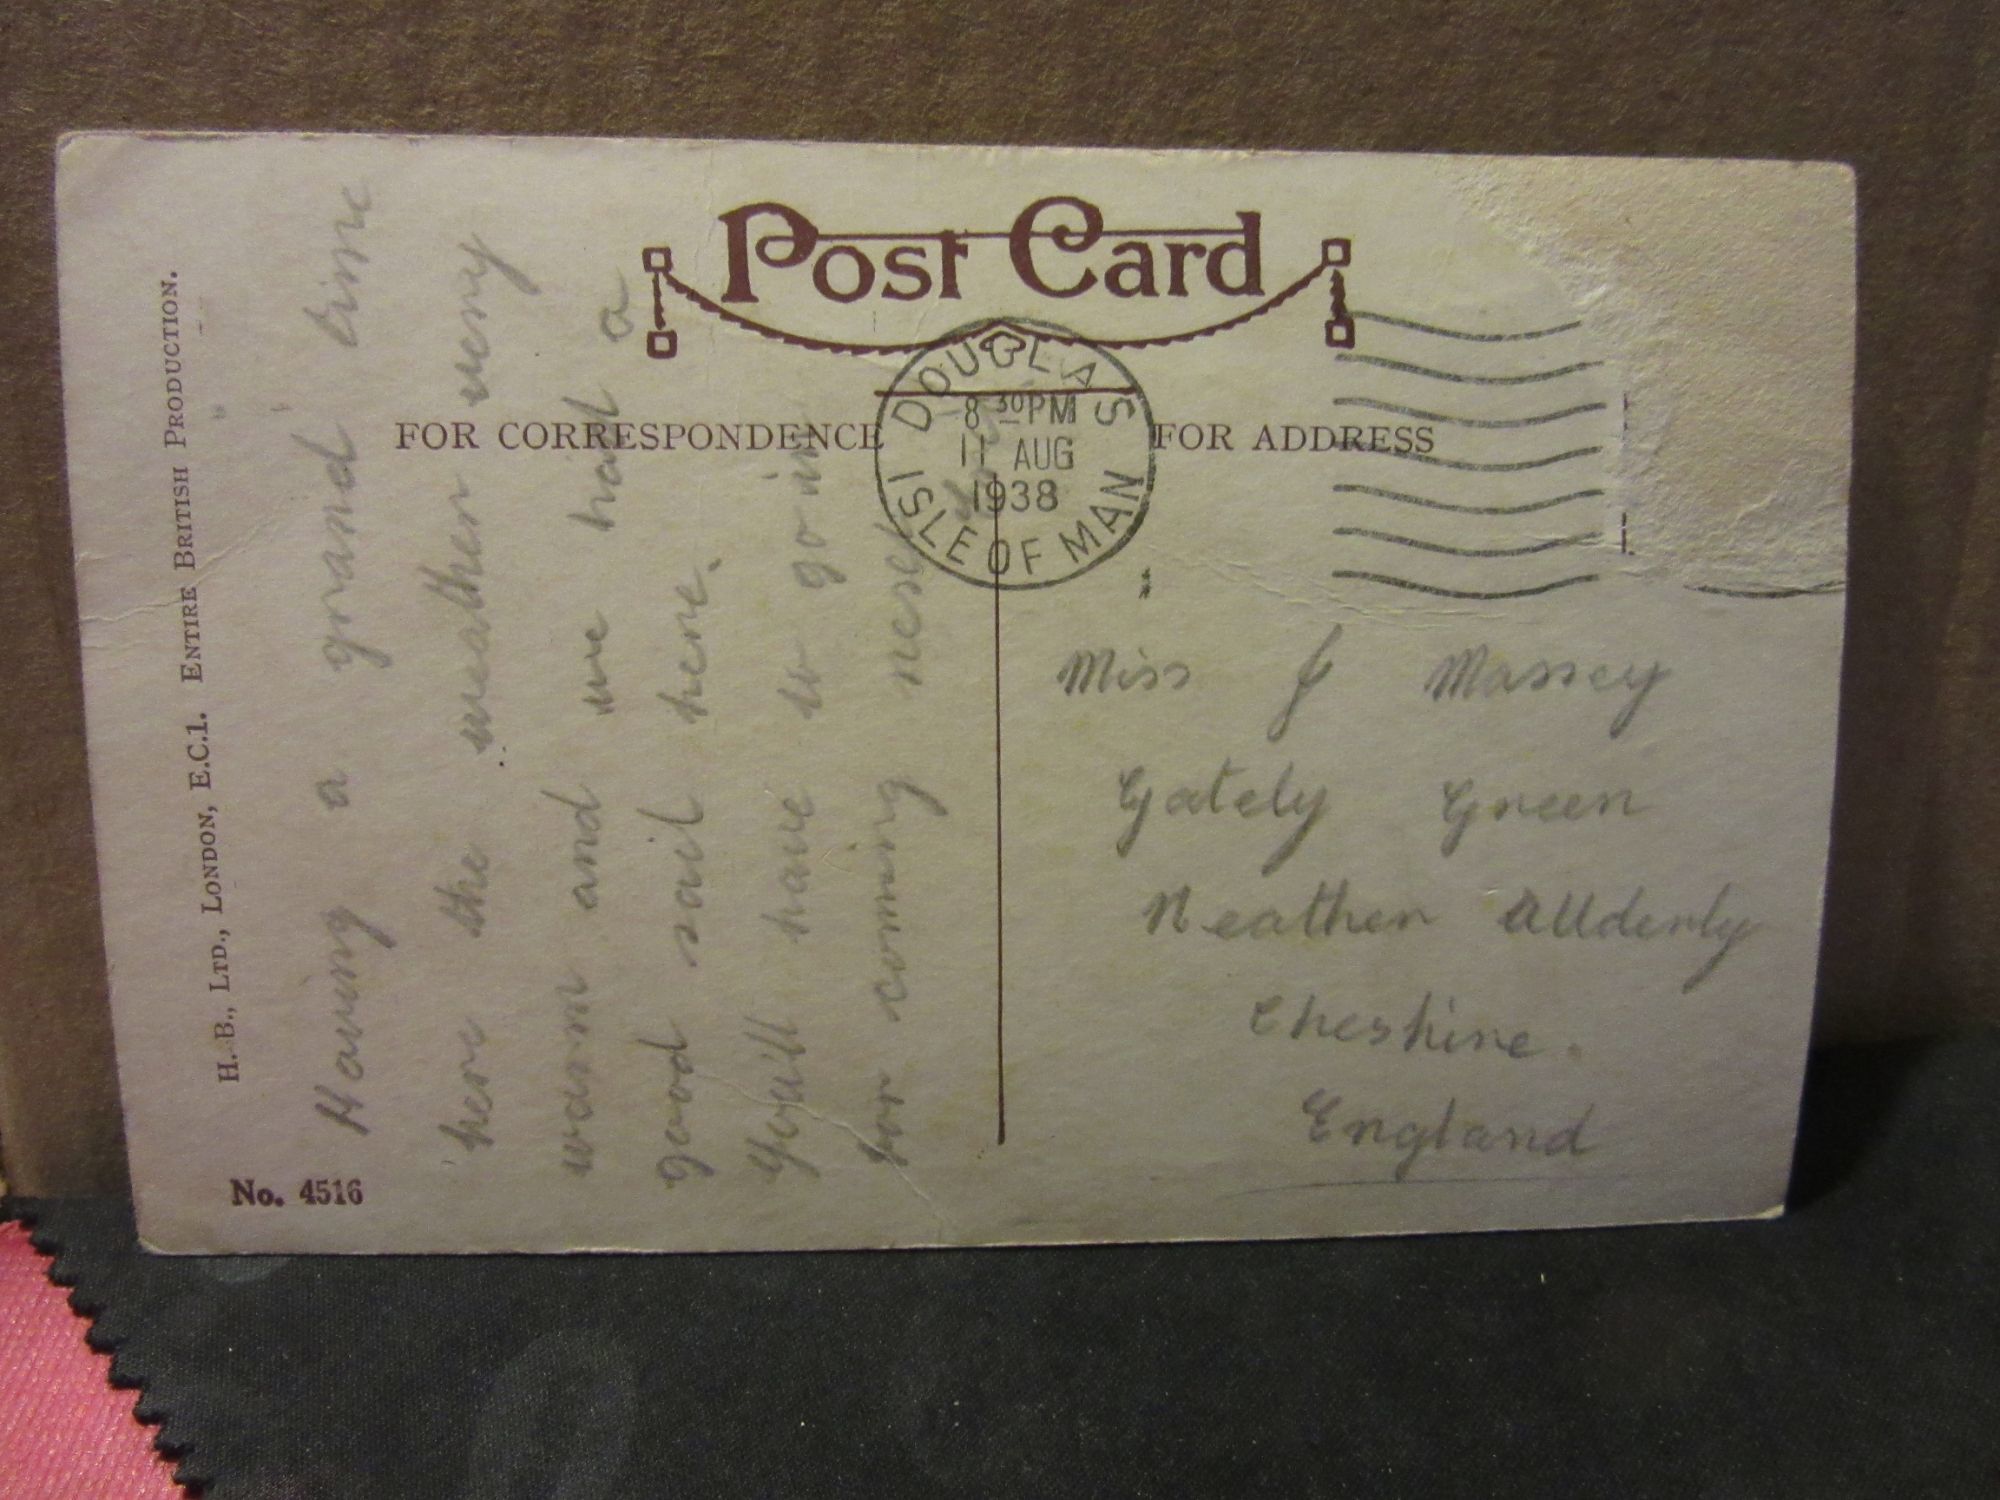 Post Card
FOR CORRESPONDENCE
FOR ADDRESS
DOUGLAS
8 30PM
11 AUG
1938
ISLE OF MAN
H. B., LTD., LONDON, E.C.1. ENTIRE BRITISH PRODUCTION.
No. 4516
Having a grand time
here the weather very
warm and we had a
good sail here.
Youll have to go in
for coming nesel
Miss J Massey
Gately Green
Neather Allderly
Cheshire.
England